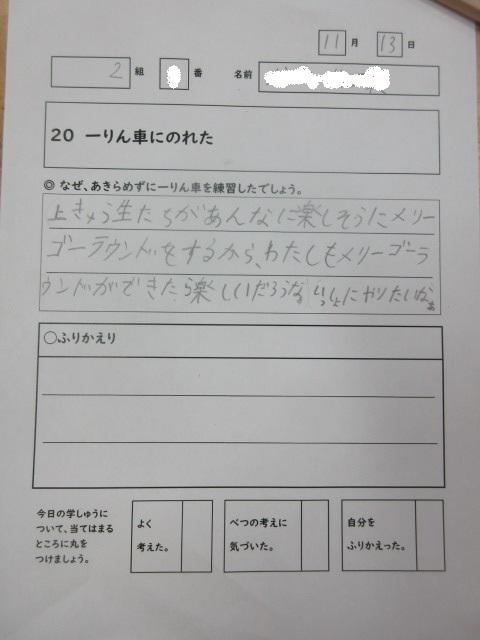 11月 13日
2組 番 名前
20 一りん車にのれた
◎ なぜ、あきらめずに一りん車を練習したでしょう。
上きゅう生たちがあんなに楽しそうにメリー
ゴーラウンドをするから、わたしもメリーゴーラ
ウンドができたら楽しいだろうな いっしょにやりたいなぁ
○ふりかえり
今日の学しゅうに
ついて、当てはまる
ところに丸を
つけましょう。
よく
考えた。
べつの考えに
気づいた。
自分を
ふりかえった。